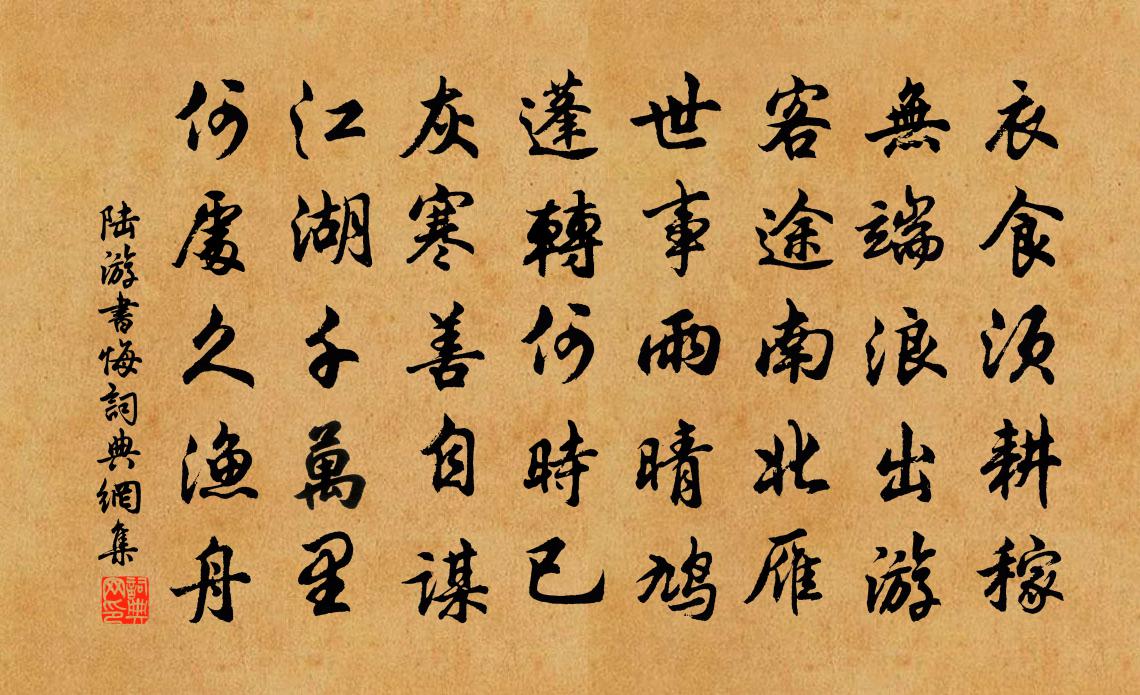 衣食須耕稼
無端浪出游
客途南北雁
世事雨晴鳩
蓬轉何時已
灰寒善自謀
江湖千萬里
何處久漁舟
陆游書悔詞典網集
詞典网印